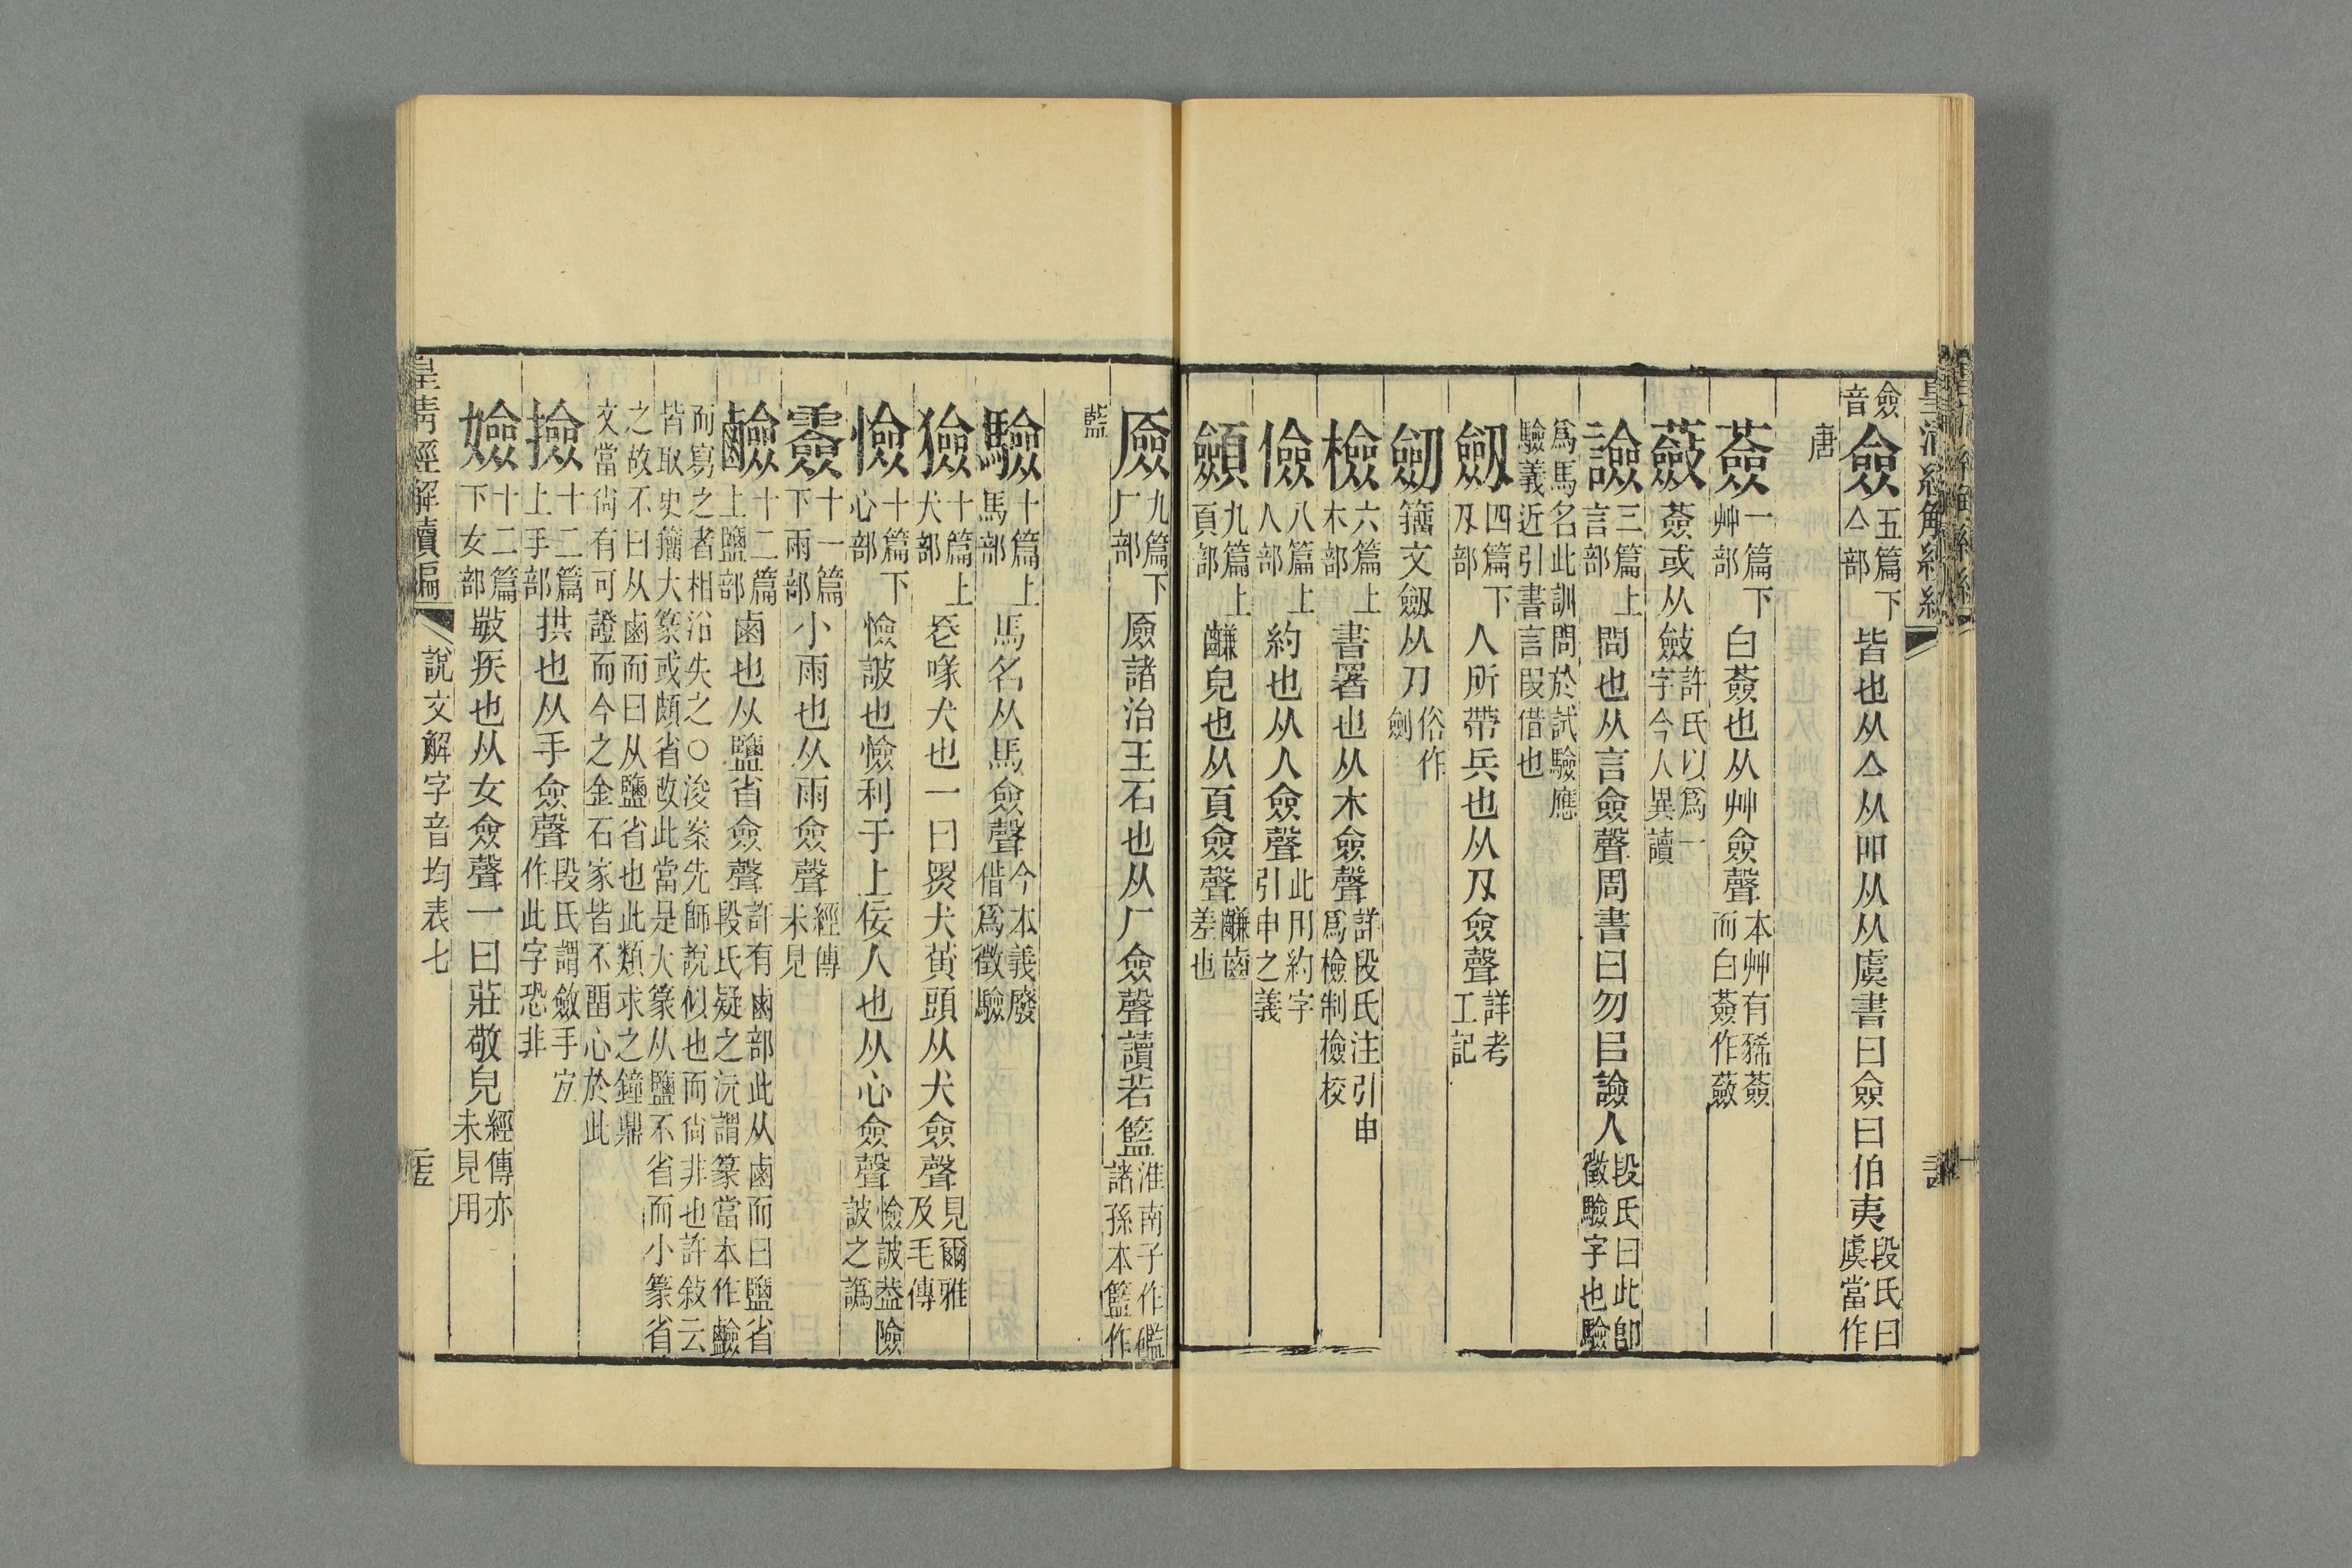 僉音 僉 五篇下亼部 皆也从亼从吅从从虞書曰僉曰伯夷 段氏曰虞當作
唐
薟 一篇下艸部 白薟也从艸僉聲 本艸有豨薟而白薟作蘞
蘞 薟或从斂 許氏以爲一字今人異讀
譣 三篇上言部 問也从言僉聲周書曰勿㠯譣人 段氏曰此卽徵驗字也驗
爲馬名此訓問於試驗應驗義近引書言叚借也
劒 四篇下刃部 人所帶兵也从刃僉聲 詳考工記
劍 籒文劒从刀 俗作劍
檢 六篇上木部 書署也从木僉聲 詳段氏注引申爲檢制檢校
儉 八篇上人部 約也从人僉聲 此用約字引申之義
顩 九篇上頁部 䶢皃也从頁僉聲 䶢齒差也
厱 九篇下厂部 厱諸治玉石也从厂僉聲讀若籃 淮南子作礛諸孫本籃作
藍
驗 十篇上馬部 馬名从馬僉聲 今本義廢借爲徵驗
獫 十篇上犬部 長喙犬也一曰黑犬黃頭从犬僉聲 見爾雅及毛傳
憸 十篇下心部 憸詖也憸利于上佞人也从心僉聲 憸詖葢險詖之譌
䨛 十一篇下雨部 小雨也从雨僉聲 經傳未見
鹼 十二篇上鹽部 鹵也从鹽省僉聲 許有鹵部此从鹵而曰鹽省段氏疑之沅謂篆當本作鹼
而寫之者相沿失之○浚案先師說似也而尙非也許敍云皆取史籒大篆或頗省改此當是大篆从鹽不省而小篆省
之故不曰从鹵而曰从鹽省也此類求之鐘鼎文當尙有可證而今之金石家皆不畱心於此
撿 十二篇上手部 拱也从手僉聲 段氏謂斂手宜作此字恐非
嬐 十二篇下女部 敏疾也从女僉聲一曰莊敬皃 經傳亦未見用
皇淸經解續編 說文解字音均表七